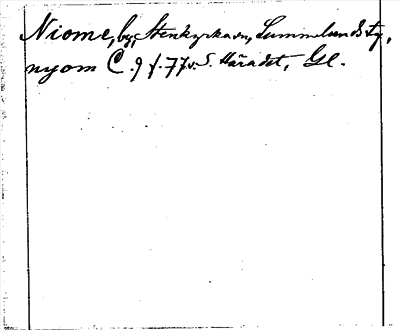 Niome, by, Stenkyrka sn, Lummelunds tg,
nyom C. 9 f. 77 v. S. Häradet, Gl.